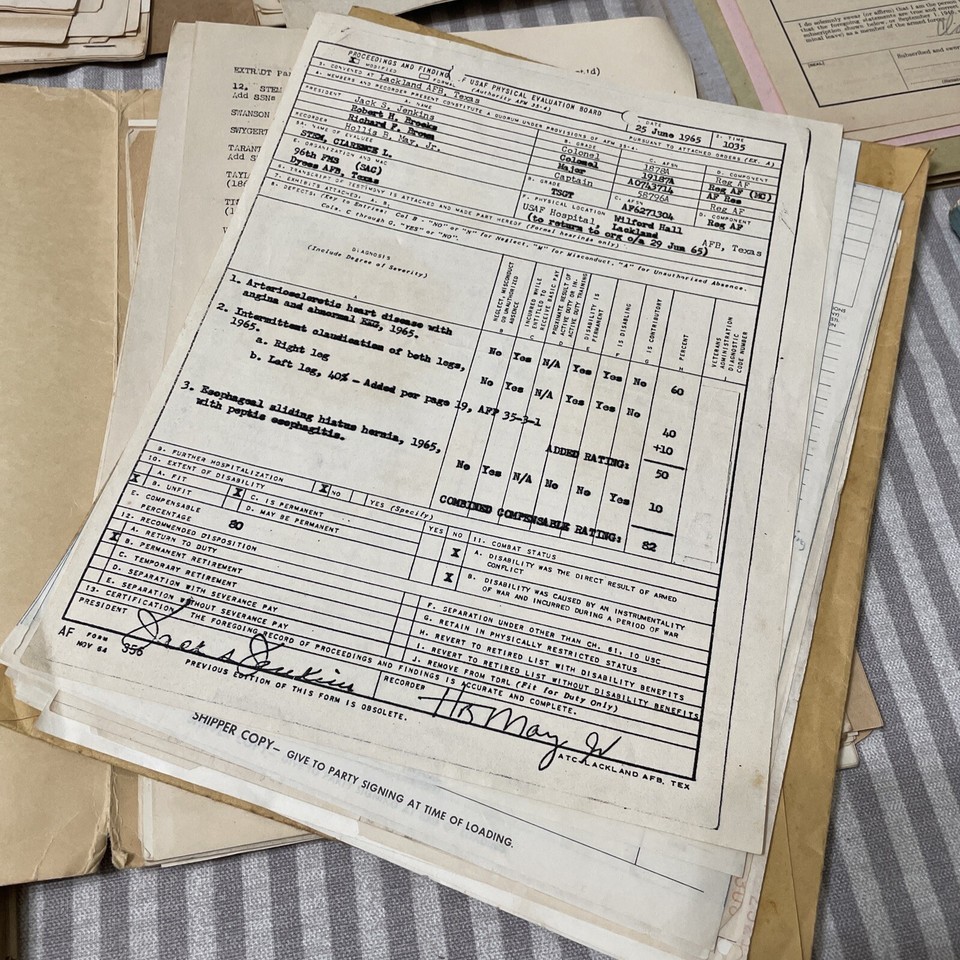 PROCEEDINGS AND FINDING OF USAF PHYSICAL EVALUATION BOARD
X MODIFIED FORMAL (Authority AFM 35-4)
1. CONVENED AT Lackland AFB, Texas
25 June 1965
2. TIME
1035
4. MEMBERS AND RECORDER PRESENT CONSTITUTE A QUORUM UNDER PROVISIONS OF AFM 35-4, PURSUANT TO ATTACHED ORDERS (EX. A)
A. NAME B. GRADE C. AFSN D. COMPONENT
PRESIDENT Jack S. Jenkins Colonel 1878A Reg AF
Robert H. Brooks Colonel 19187A Reg AF (MC)
Richard F. Brown Major AO743714 AF Res
RECORDER Hollis B. May, Jr. Captain 58796A Reg AF
5A. NAME OF EVALUEE
STEM, CLARENCE L.
B. GRADE
TSGT
AF6271304
D. COMPONENT
Reg AF
E. ORGANIZATION AND MAC
96th FMS (SAC)
Dyess AFB, Texas
F. PHYSICAL LOCATION
USAF Hospital, Wilford Hall
Lackland AFB, Texas
(to return to org o/a 29 Jun 65)
6. TRANSCRIPT OF TESTIMONY IS ATTACHED AND MADE PART HEREOF (Formal hearings only)
7. EXHIBITS ATTACHED: A, B,
8. DEFECTS: (Key to Entries: Col B - "NO" or "N" for Neglect, "M" for Misconduct, "A" for Unauthorized Absence.
Cols. C through G, "YES" or "NO".
DIAGNOSIS
(Include Degree of Severity)
NEGLECT, MISCONDUCT OR UNAUTHORIZED ABSENCE
INCURRED WHILE ENTITLED TO RECEIVE BASIC PAY
PROXIMATE RESULT OF ACTIVE DUTY OR INACTIVE DUTY TRAINING
DISABILITY IS PERMANENT
IS DISABLING
IS CONTRIBUTORY
PERCENT
VETERANS ADMINISTRATION DIAGNOSTIC CODE NUMBER
1. Arteriosclerotic heart disease with
angina and abnormal EKG, 1965. No Yes N/A Yes Yes No 60
2. Intermittent claudication of both legs,
1965. No Yes N/A Yes Yes No
a. Right leg 40
b. Left leg, 40% - Added per page 19, AFP 35-3-1 +10
ADDED RATING: 50
3. Esophageal sliding hiatus hernia, 1965,
with peptic esophagitis. No Yes N/A No No Yes 10
COMBINED COMPENSABLE RATING: 82
9. FURTHER HOSPITALIZATION X NO YES (Specify)
10. EXTENT OF DISABILITY
A. FIT X C. IS PERMANENT
X B. UNFIT D. MAY BE PERMANENT
E. COMPENSABLE PERCENTAGE 80
YES NO 11. COMBAT STATUS
X A. DISABILITY WAS THE DIRECT RESULT OF ARMED CONFLICT
X B. DISABILITY WAS CAUSED BY AN INSTRUMENTALITY OF WAR AND INCURRED DURING A PERIOD OF WAR
12. RECOMMENDED DISPOSITION
A. RETURN TO DUTY
X B. PERMANENT RETIREMENT
C. TEMPORARY RETIREMENT
D. SEPARATION WITH SEVERANCE PAY
E. SEPARATION WITHOUT SEVERANCE PAY
F. SEPARATION UNDER OTHER THAN CH. 61, 10 USC
G. RETAIN IN PHYSICALLY RESTRICTED STATUS
H. REVERT TO RETIRED LIST WITH DISABILITY BENEFITS
I. REVERT TO RETIRED LIST WITHOUT DISABILITY BENEFITS
J. REMOVE FROM TDRL (Fit for Duty Only)
13. CERTIFICATION. THE FOREGOING RECORD OF PROCEEDINGS AND FINDINGS IS ACCURATE AND COMPLETE.
PRESIDENT Jack S Jenkins
RECORDER HB May Jr
AF FORM NOV 64 356
PREVIOUS EDITION OF THIS FORM IS OBSOLETE.
ATC, LACKLAND AFB, TEX
SHIPPER COPY— GIVE TO PARTY SIGNING AT TIME OF LOADING.
EXTRACT
12. STEM
Add SSN:
SWANSON
SWYGERT
TARANT
Add S
I do solemnly swear (or affirm) that I am the person
that the foregoing statements are true and
subscription shown below, or September 1, 194
minal leave) as a member of the armed
Subscribed and